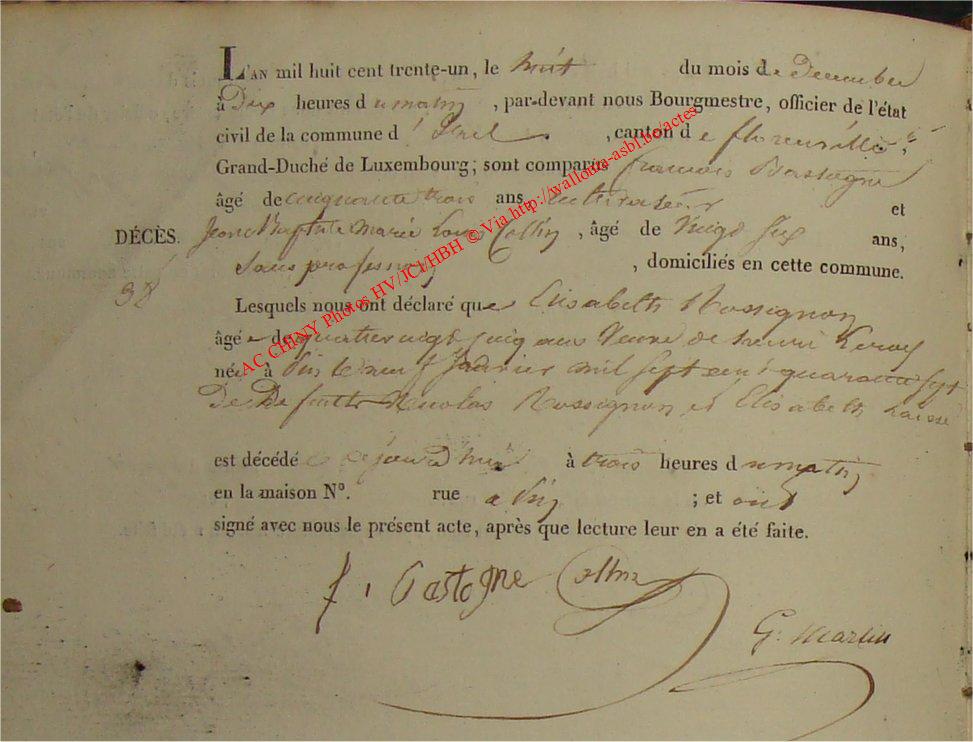 L'AN mil huit cent trente-un, le huit du mois de Decembre
à Dix heures du matin, par-devant nous Bourgmestre, officier de l'état
civil de la commune d' , canton de florenville,
Grand-Duché de Luxembourg; sont comparus francois Bastogne
âgé de cinquante trois ans, cultivateur et
DÉCÈS. Jean Baptiste Marie Louis Collin, âgé de Vingt Six ans,
38 Sans profession, domiciliés en cette commune.
Lesquels nous ont déclaré que Elisabeth Rossignon
âgée de quatre vingt cinq ans Veuve de henri
née à le neuf Janvier mil sept cent quarante sept
De Defunts Nicolas Rossignon et Elisabeth
est décédée ce jourd'hui à trois heures du matin
en la maison N°. rue a ; et ont
signé avec nous le présent acte, après que lecture leur en a été faite.
f. Bastogne Collin
G. Martin
AC CHINY Photos HV/JCI/HBH © Via http://wallonia-asbl.be/actes